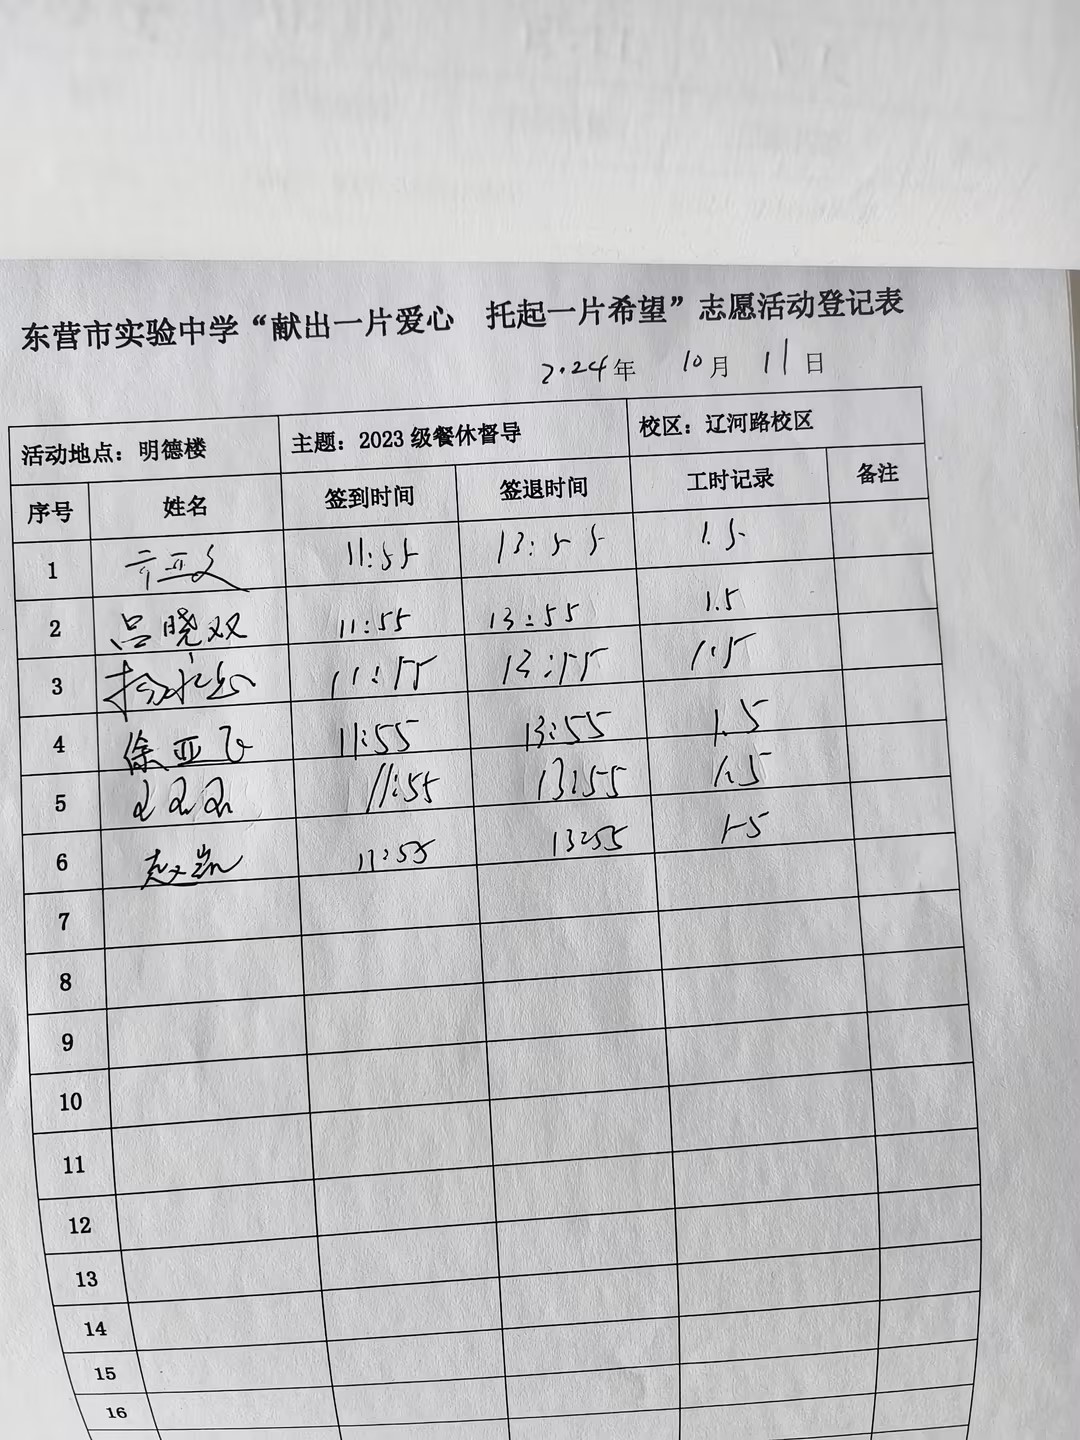 东营市实验中学“献出一片爱心 托起一片希望”志愿活动登记表
2024年 10月 11日
活动地点：明德楼 主题：2023级餐休督导 校区：辽河路校区
序号 姓名 签到时间 签退时间 工时记录 备注
1 11:55 13:55 1.5
2 吕晓双 11:55 13:55 1.5
3 11:55 13:55 1.5
4 徐亚飞 11:55 13:55 1.5
5 11:55 13:55 1.5
6 赵凯 11:55 13:55 1.5
7
8
9
10
11
12
13
14
15
16